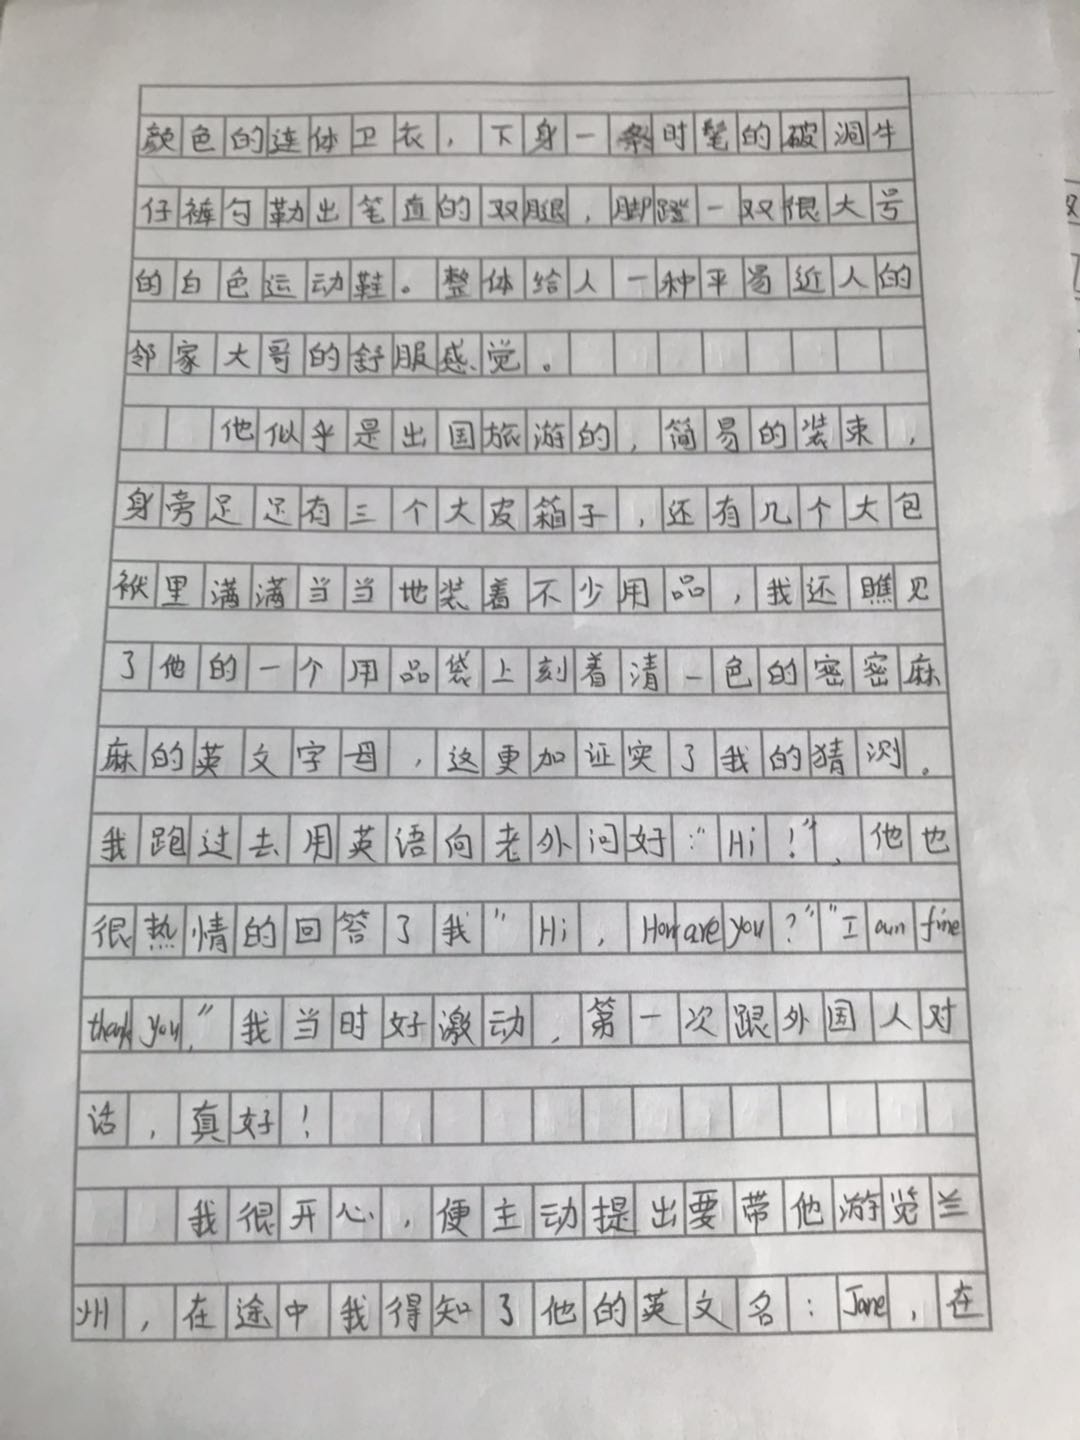 颜色的连体卫衣，下身一条时髦的破洞牛
仔裤勾勒出笔直的双腿，脚蹬一双很大号
的白色运动鞋。整体给人一种平易近人的
邻家大哥的舒服感觉。
他似乎是出国旅游的，简易的装束，
身旁足足有三个大皮箱子，还有几个大包
袱里满满当当地装着不少用品，我还瞧见
了他的一个用品袋上刻着清一色的密密麻
麻的英文字母，这更加证实了我的猜测。
我跑过去用英语向老外问好："Hi！"，他也
很热情的回答了我"Hi，How are you？""I am fine
thank you，"我当时好激动，第一次跟外国人对
话，真好！
我很开心，便主动提出要带他游览兰
州，在途中我得知了他的英文名：Jane，在